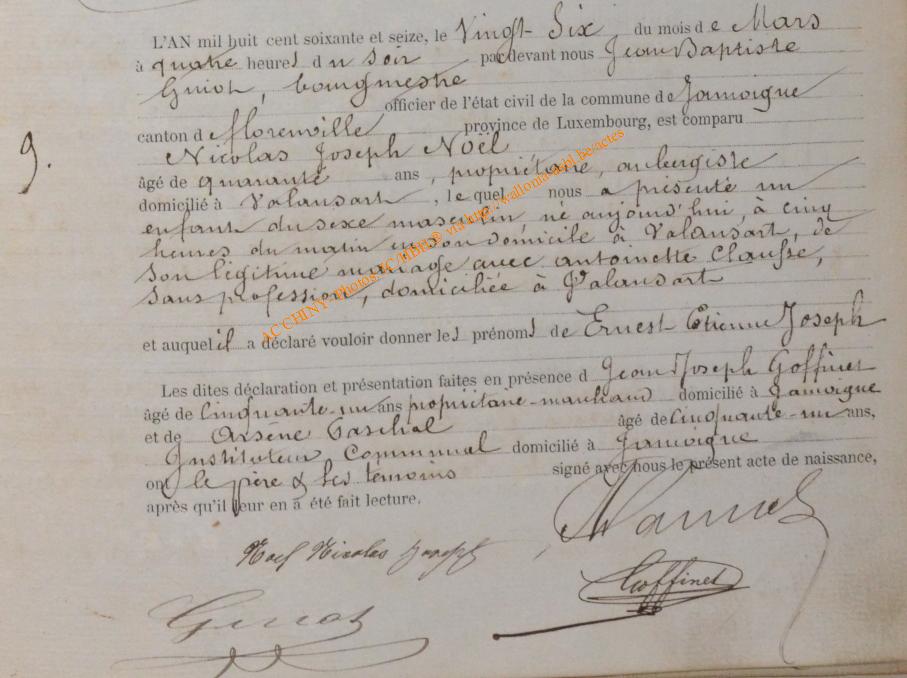 L'AN mil huit cent soixante et seize, le Vingt-Six du mois de Mars
à quatre heures du soir pardevant nous Jean Baptiste
Guiot, bourgmestre
officier de l'état civil de la commune de Jamoigne
canton de Florenville province de Luxembourg, est comparu
9. Nicolas Joseph Noël
âgé de quarante ans, propriétaire, aubergiste
domicilié à Valansart, lequel nous a présenté un
enfant du sexe masculin, né aujourd'hui, à cinq
heures du matin en son domicile à Valansart, de
son légitime mariage avec antoinette Clausse,
sans profession, domiciliée à Valansart
AC CHINY - Photos AC/MBH® via http://wallonia.mbl.be/actes
et auquel il a déclaré vouloir donner les prénoms de Ernest Etienne Joseph
Les dites déclaration et présentation faites en présence d Jean Joseph Goffinet
âgé de Cinquante-un ans propriétaire-marchand domicilié à Jamoigne
et de Arsène Paschal âgé de Cinquante-un ans,
Instituteur Communal domicilié à Jamoigne
ont le père & les témoins signé avec nous le présent acte de naissance,
après qu'il leur en a été fait lecture.
Noël Nicolas Joseph
Goffinet
Guiot